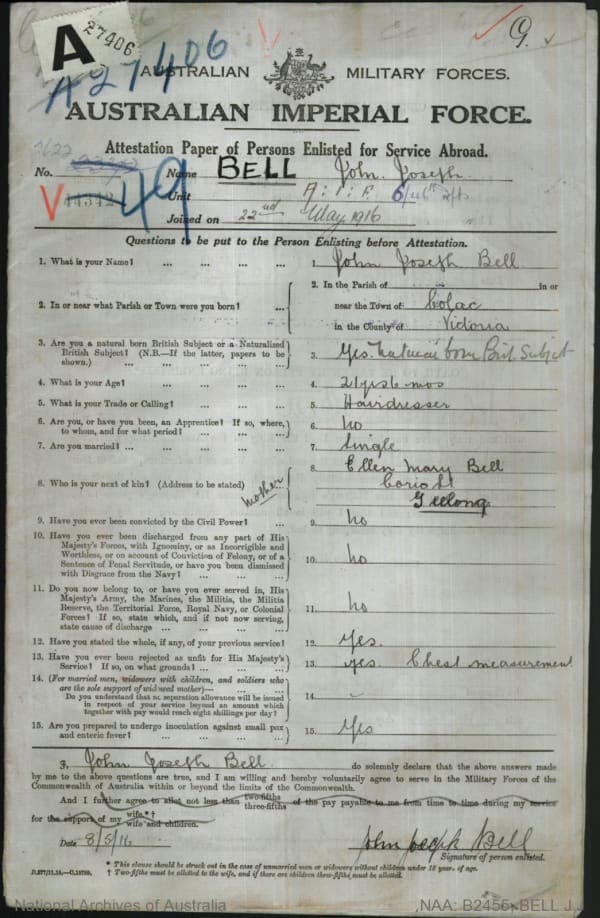 A
27406
A27406
G.
AUSTRALIAN MILITARY FORCES.
AUSTRALIAN IMPERIAL FORCE.
Attestation Paper of Persons Enlisted for Service Abroad.
No. Name BELL John Joseph
V 49 Unit A.I.F.
Joined on 22nd May 1916
Questions to be put to the Person Enlisting before Attestation.
1. What is your Name? ... ... ... ... 1. John Joseph Bell
2. In or near what Parish or Town were you born? ... 2. In the Parish of in or
near the Town of Colac
in the County of Victoria
3. Are you a natural born British Subject or a Naturalized
British Subject? (N.B.—If the latter, papers to be
shown.) ... ... ... ... 3. Yes. Natural born Brit. Subject
4. What is your Age? ... ... ... ... 4. 21 yrs 6 mos
5. What is your Trade or Calling? ... ... ... 5. Hairdresser
6. Are you, or have you been, an Apprentice? If so, where,
to whom, and for what period? ... ... ... 6. No
7. Are you married? ... ... ... ... 7. Single
8. Who is your next of kin? (Address to be stated) ... mother 8. Ellen Mary Bell
Corio St
Geelong
9. Have you ever been convicted by the Civil Power? ... 9. No
10. Have you ever been discharged from any part of His
Majesty's Forces, with Ignominy, or as Incorrigible and
Worthless, or on account of Conviction of Felony, or of a
Sentence of Penal Servitude, or have you been dismissed
with Disgrace from the Navy? ... ... ... 10. No
11. Do you now belong to, or have you ever served in, His
Majesty's Army, the Marines, the Militia, the Militia
Reserve, the Territorial Force, Royal Navy, or Colonial
Forces? If so, state which, and if not now serving,
state cause of discharge ... ... ... 11. No
12. Have you stated the whole, if any, of your previous service? 12. Yes.
13. Have you ever been rejected as unfit for His Majesty's
Service? If so, on what grounds? ... ... 13. Yes. Chest measurement
14. (For married men, widowers with children, and soldiers who
are the sole support of widowed mother)—
Do you understand that no separation allowance will be issued
in respect of your service beyond an amount which
together with pay would reach eight shillings per day? 14. -
15. Are you prepared to undergo inoculation against small pox
and enteric fever? ... ... ... ... 15. Yes
I, John Joseph Bell do solemnly declare that the above answers made
by me to the above questions are true, and I am willing and hereby voluntarily agree to serve in the Military Forces of the
Commonwealth of Australia within or beyond the limits of the Commonwealth.
And I further agree to allot not less than two-fifths three-fifths of the pay payable to me from time to time during my service
for the support of my wife.*† wife and children.
Date 8/5/16 John Joseph Bell
Signature of person enlisted.
* This clause should be struck out in the case of unmarried men or widowers without children under 18 year. of age.
† Two-fifths must be allotted to the wife, and if there are children three-fifths must be allotted.
National Archives of Australia NAA: B2455, BELL J J